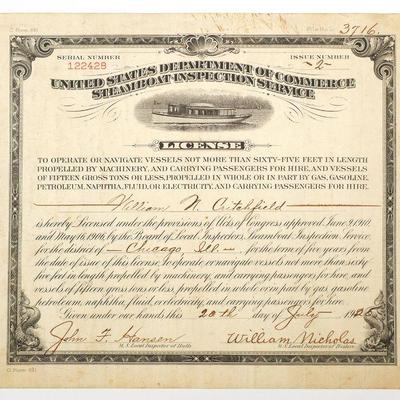 C Form 831
3716.
SERIAL NUMBER
ISSUE NUMBER
122428
-2-
UNITED STATES DEPARTMENT OF COMMERCE
STEAMBOAT-INSPECTION SERVICE
LICENSE
TO OPERATE OR NAVIGATE VESSELS NOT MORE THAN SIXTY-FIVE FEET IN LENGTH
PROPELLED BY MACHINERY, AND CARRYING PASSENGERS FOR HIRE, AND VESSELS
OF FIFTEEN GROSS TONS OR LESS, PROPELLED IN WHOLE OR IN PART BY GAS, GASOLINE,
PETROLEUM, NAPHTHA, FLUID, OR ELECTRICITY, AND CARRYING PASSENGERS FOR HIRE.
William N. Critchfield
is hereby Licensed, under the provisions of Acts of Congress approved June 9, 1910,
and May 16, 1906, by the Board of Local Inspectors, Steamboat Inspection Service,
for the district of Chicago, Ill. for the term of five years from
the date of issue of this License. To operate or navigate vessels not more than sixty
five feet in length propelled by machinery, and carrying passengers for hire, and
vessels of fifteen gross tons or less, propelled in whole or in part by gas, gasoline,
petroleum, naphtha, fluid, or electricity, and carrying passengers for hire.
Given under our hands this 20th day of July 1925
John F. Hansen
William Nicholas
U.S. Local Inspector of Hulls
U.S. Local Inspector of Boilers
C Form 831